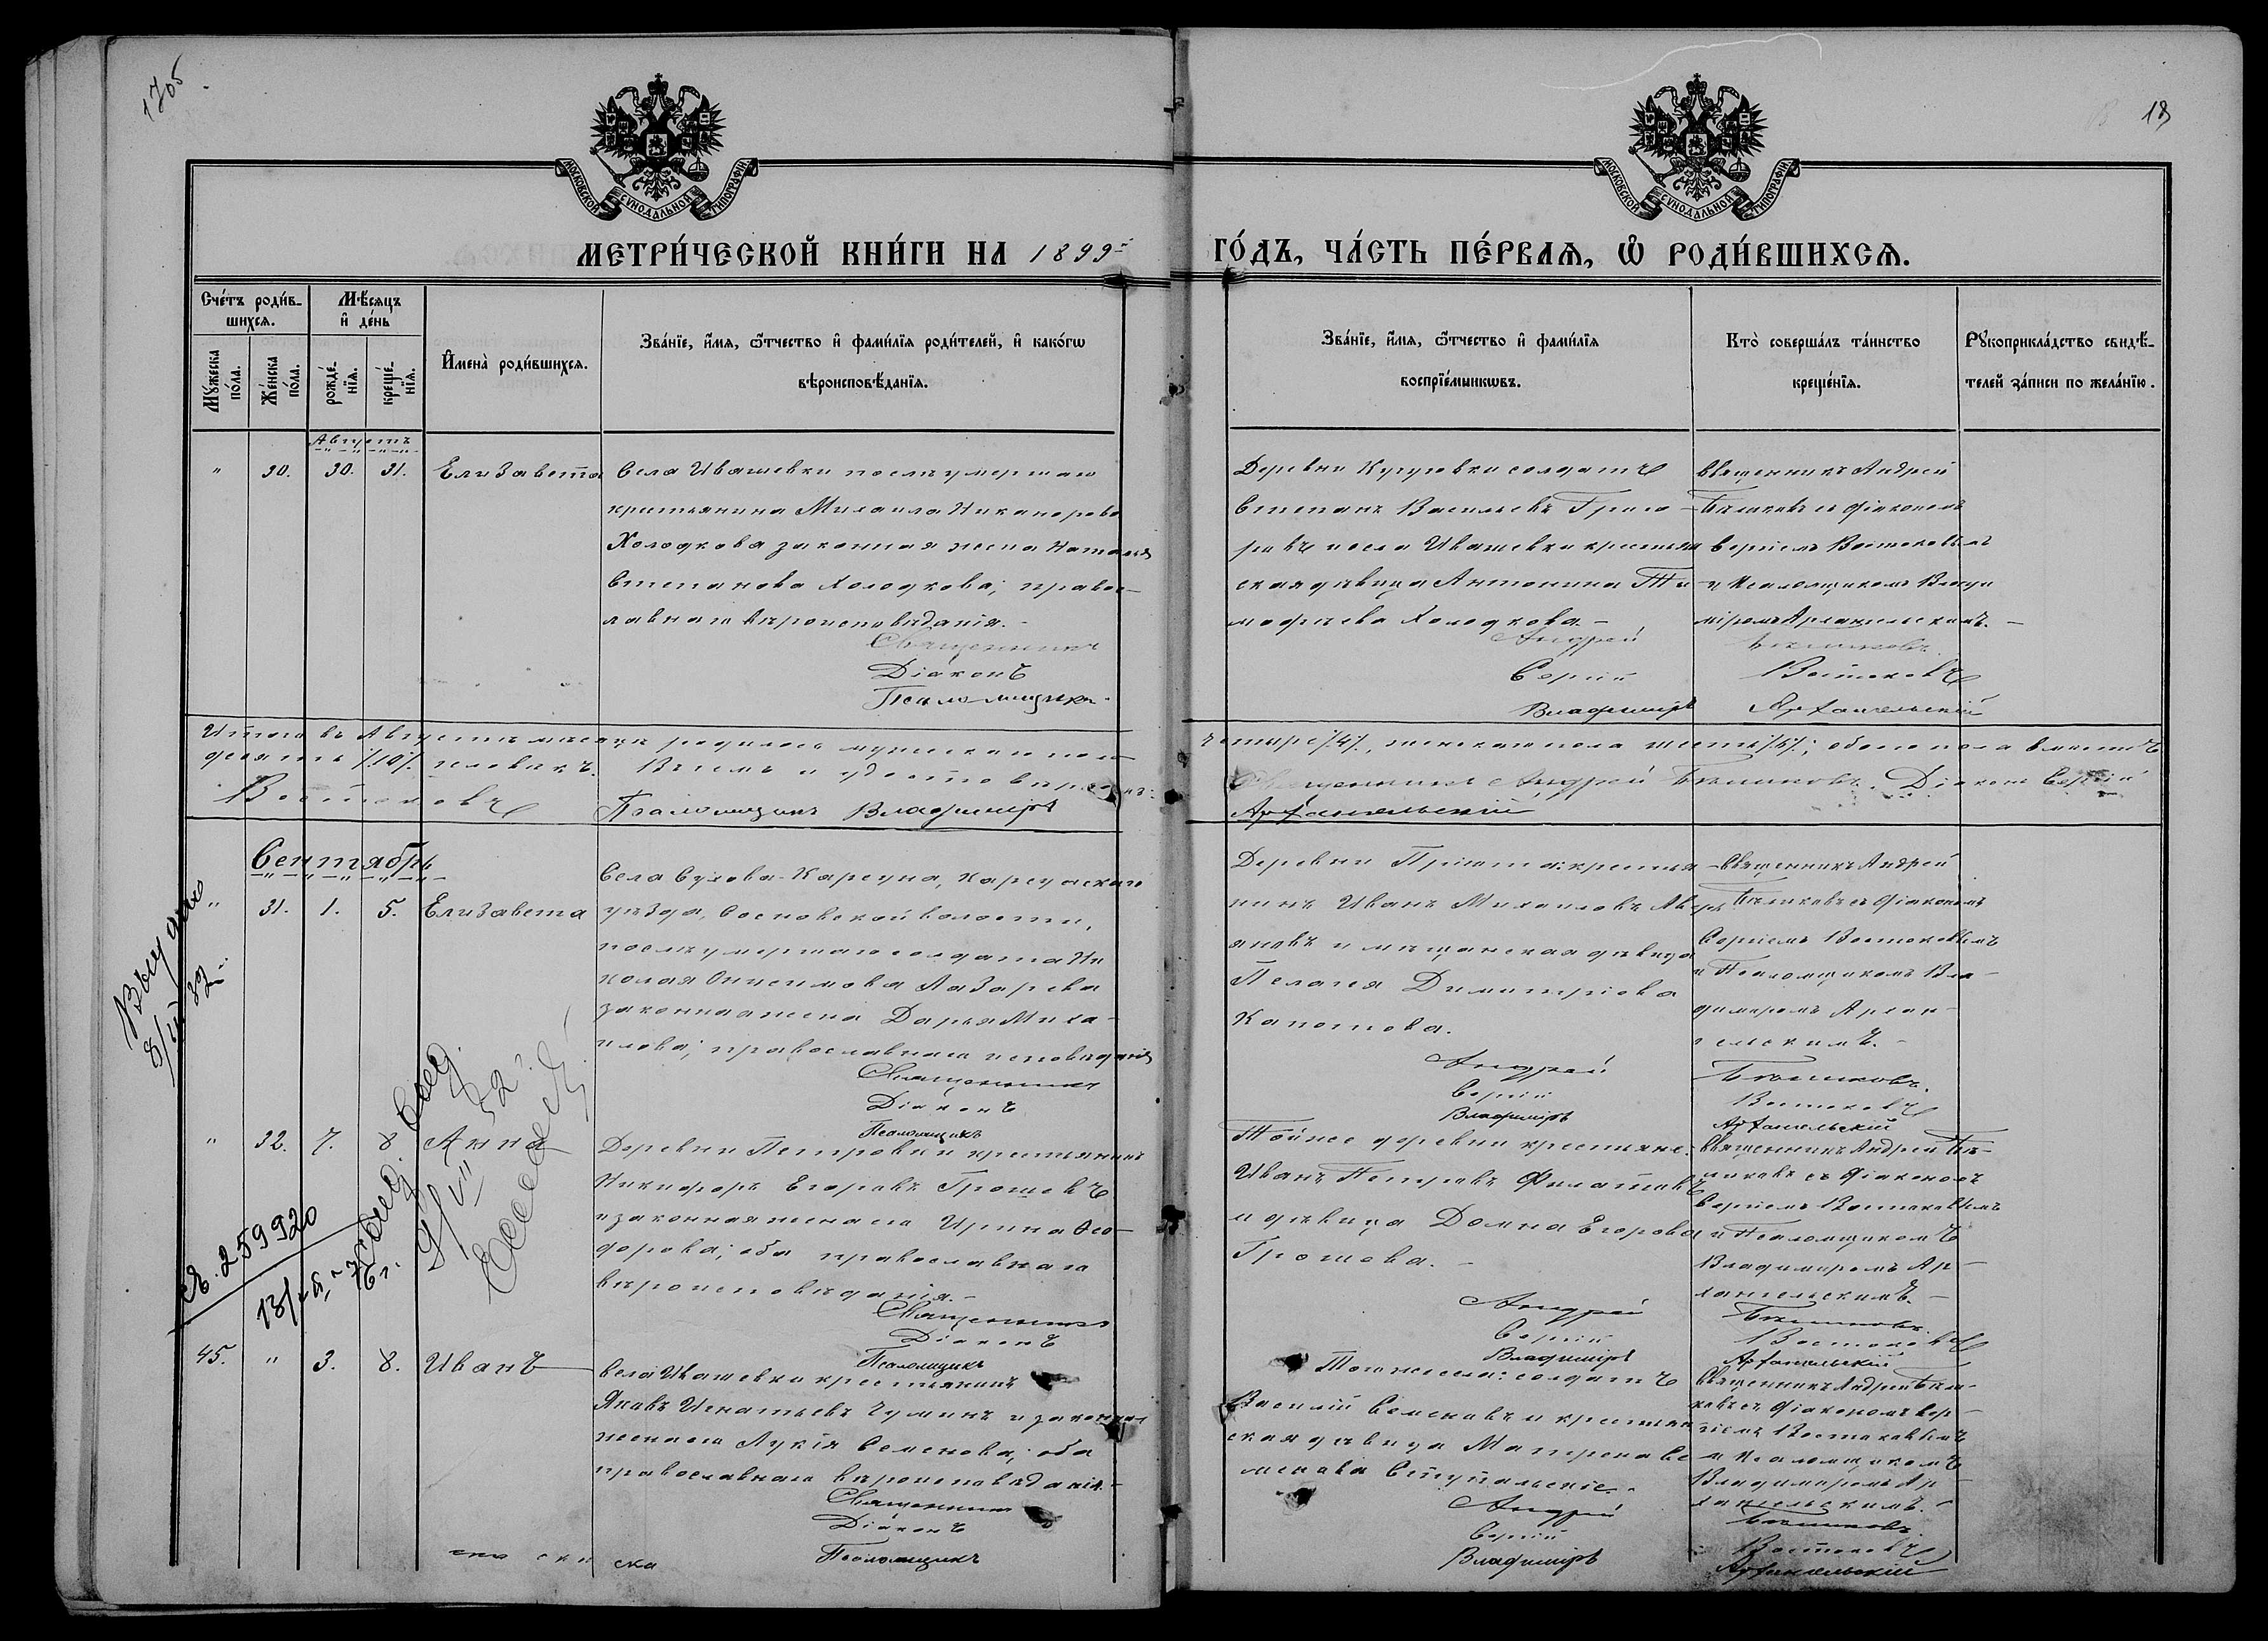 1705
18
МОСКОВСКОЙ СѴНОДАЛЬНОЙ ТИПОГРАФІИ
МОСКОВСКОЙ СѴНОДАЛЬНОЙ ТИПОГРАФІИ
МЕТРИ́ЧЕСКОЙ КНИ́ГИ НА 1899й
ГО́ДЪ, ЧА́СТЬ ПЕ́РВАѦ, Ѡ҆ РОДИ́ВШИХСѦ.
Сче́тъ роди́в-
шихсѧ.
Мѣ́сѧцъ
и҆ де́нь
Мꙋ́жеска по́ла.
Же́нска по́ла.
рожде́-нїѧ.
креще́-нїѧ.
И҆мена̀ роди́вшихсѧ.
Зва́нїе, и҆́мѧ, ѻ҆́тчество и҆ фами́лїѧ роди́телей, и҆ како́гѡ
вѣроисповѣ́данїѧ.
Зва́нїе, и҆́мѧ, ѻ҆́тчество и҆ фами́лїѧ
воспрїе́мникѡвъ.
Кто̀ соверша́лъ та́инство
креще́нїѧ.
Рꙋкоприкла́дство свидѣ́-
телей за́писи по жела́нїю.
Августъ
" 30. 30. 31. Елизавета
Села Ивашевки послѣ умершаго
крестьянина Михаила Никанорова
Холодкова законная жена Наталья
Степанова Холодкова; правос-
лавнаго вѣроисповѣданія.-
Священникъ
Діаконъ
Псаломщикъ
Деревни солдатъ
Степанъ Васильевъ Григо-
рьевъ и села Ивашевки крестьян
ская дѣвица Антонина Ти-
мофѣева Холодкова.-
Андрей
Сергій
Владиміръ
Священникъ Андрей
Бѣликовъ съ діакономъ
Сергіемъ Востоковымъ
и Псаломщикомъ Влади
міромъ Архангельскимъ.-
Востоковъ
Архангельскій
Итого въ Августѣ мѣсяцѣ родилось мужескаго пола четыре /4/., женскаго пола шесть /6/; обоего пола вмѣстѣ
десять /10/. человѣкъ. В семъ и удостовѣряемъ: Священникъ Андрей Бѣликовъ. Діаконъ Сергій
Востоковъ Псаломщикъ Владиміръ Архангельскій
Сентябрь
" 31. 1. 5. Елизавета
Села Сухова-Карсуна, Карсунскаго
уѣзда, Сосновской волости,
послѣ умершаго солдата Ни
колая Онисимова Лазарева
законная жена Дарья Миха-
илова; православнаго исповѣданія
Священникъ
Діаконъ
Псаломщикъ
Деревни крестья-
нинъ Иванъ Михаиловъ Авер
яновъ и мѣщанская дѣвица
Пелагея Димитріева
Капотова.
Андрей
Сергій
Владиміръ
Священникъ Андрей
Бѣликовъ съ діакономъ
Сергіемъ Востоковымъ
и Псаломщикомъ Вла-
димиромъ Архан-
гельскимъ.-
Бѣликовъ.
Востоковъ
Архангельскій
" 32. 7. 8 Анна
Деревни Петровки крестьянинъ
Никифоръ Егоровъ Грошевъ
и законная жена его Ирина Фео-
дорова; оба православнаго
вѣроисповѣданія.-
Священникъ
Діаконъ
Псаломщикъ
Тойже деревни крестьяне:
Иванъ Петровъ Филатовъ
и дѣвица Домна Егорова
Грошева.-
Андрей
Сергій
Владиміръ
Священникъ Андрей Бѣ-
ликовъ съ діакономъ
Сергіемъ Востоковымъ
и Псаломщикомъ
Владимиромъ Ар-
хангельскимъ.-
Бѣликовъ.
Востоковъ
Архангельскій
45. " 3. 8. Иванъ
Села Ивашевки крестьянинъ
Яковъ Игнатьевъ Чуминъ и законная
жена его Лукія Семенова; оба
православнаго вѣроисповѣданія.-
Священникъ
Діаконъ
Псаломщикъ
Того же села: солдатъ
Василій Семеновъ и крестьян
ская дѣвица Матрена Се
менова
Андрей
Сергій
Владиміръ
Священникъ Андрей Бѣли-
ковъ съ діакономъ Сер-
гіемъ Востоковымъ
и Псаломщикомъ
Владимиромъ Ар-
хангельскимъ.-
Бѣликовъ.
Востоковъ
Архангельскій
Выдано
259920